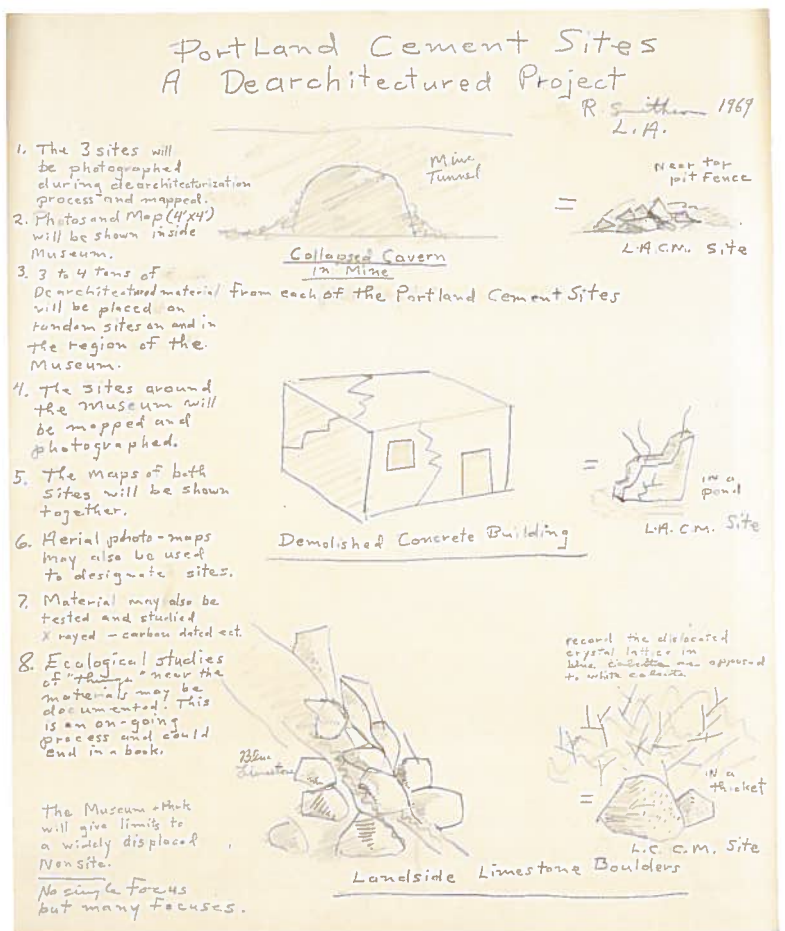 Portland Cement Sites
A Dearchitectured Project
R. Smithson 1969
L.A.
1. The 3 sites will
be photographed
during dearchitecturization
process and mapped.
2. Photos and Map (4'x4')
will be shown inside
Museum.
3. 3 to 4 tons of
Dearchitectured material from each of the Portland Cement Sites
will be placed on
random sites on and in
the region of the
Museum.
4. The sites around
the Museum will
be mapped and
photographed.
5. The maps of both
sites will be shown
together.
6. Aerial photo-maps
may also be used
to designate sites.
7. Material may also be
tested and studied
X rayed – carbon dated ect.
8. Ecological studies
of "things" near the
materials may be
documented. This
is an on-going
process and could
end in a book.
The Museum
will give limits to
a widely displaced
Nonsite.
No single focus
but many focuses.
Mine
Tunnel
Collapsed Cavern
in Mine
=
Near tar
pit Fence
L.A.C.M. Site
Demolished Concrete Building
=
in a
pond
L.A.C.M. Site
Blue
Limestone
Landside Limestone Boulders
record the dislocated
crystal lattice in
blue calcite as opposed
to white calcite
=
in a
thicket
L.C.C.M. Site